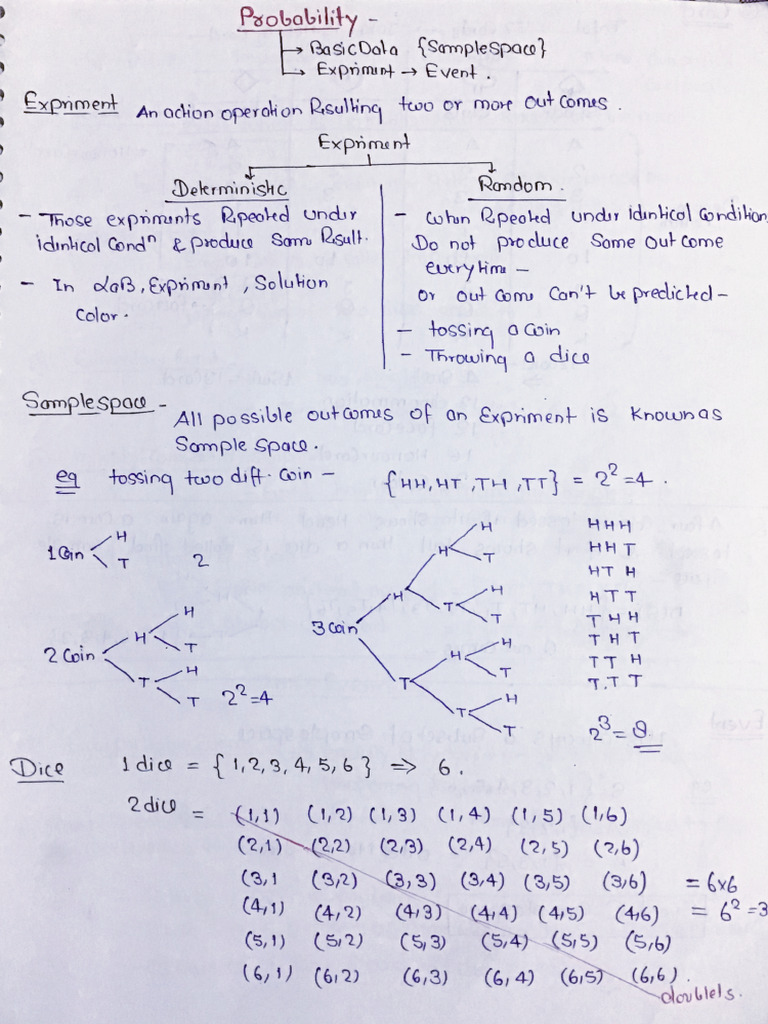 Probability -
→ Basic Data {Sample Space}
→ Expriment → Event .
Expriment An action operation Resulting two or more out comes .
Expriment
Deterministic
Random .
- Those expriments Repeated under
idintical Condⁿ & produce Same Result.
- In LaB, Expriment, Solution
Color .
- When Repeated under idintical Condition,
Do not produce Same out come
everytime -
or out come Can't be predicted -
- tossing a coin
- Throwing a dice
Sample space - All possible out comes of an Expriment is Known as
Sample Space .
eg tossing two diff. Coin - {HH, HT, TH, TT} = 2² = 4 .
1 Coin H T 2
2 Coin H T H T H T 2² = 4
3 Coin H T H T H T H T H T H T H T
HHH
HHT
HTH
HTT
THH
THT
TTH
T.TT
2³ = 8
Dice 1 dice = {1, 2, 3, 4, 5, 6} => 6 .
2 dice = (1,1) (1,2) (1,3) (1,4) (1,5) (1,6)
(2,1) (2,2) (2,3) (2,4) (2,5) (2,6)
(3,1 (3,2) (3,3) (3,4) (3,5) (3,6) = 6x6
(4,1) (4,2) (4,3) (4,4) (4,5) (4,6) = 6² = 3
(5,1) (5,2) (5,3) (5,4) (5,5) (5,6)
(6,1) (6,2) (6,3) (6,4) (6,5) (6,6) .
doublets.